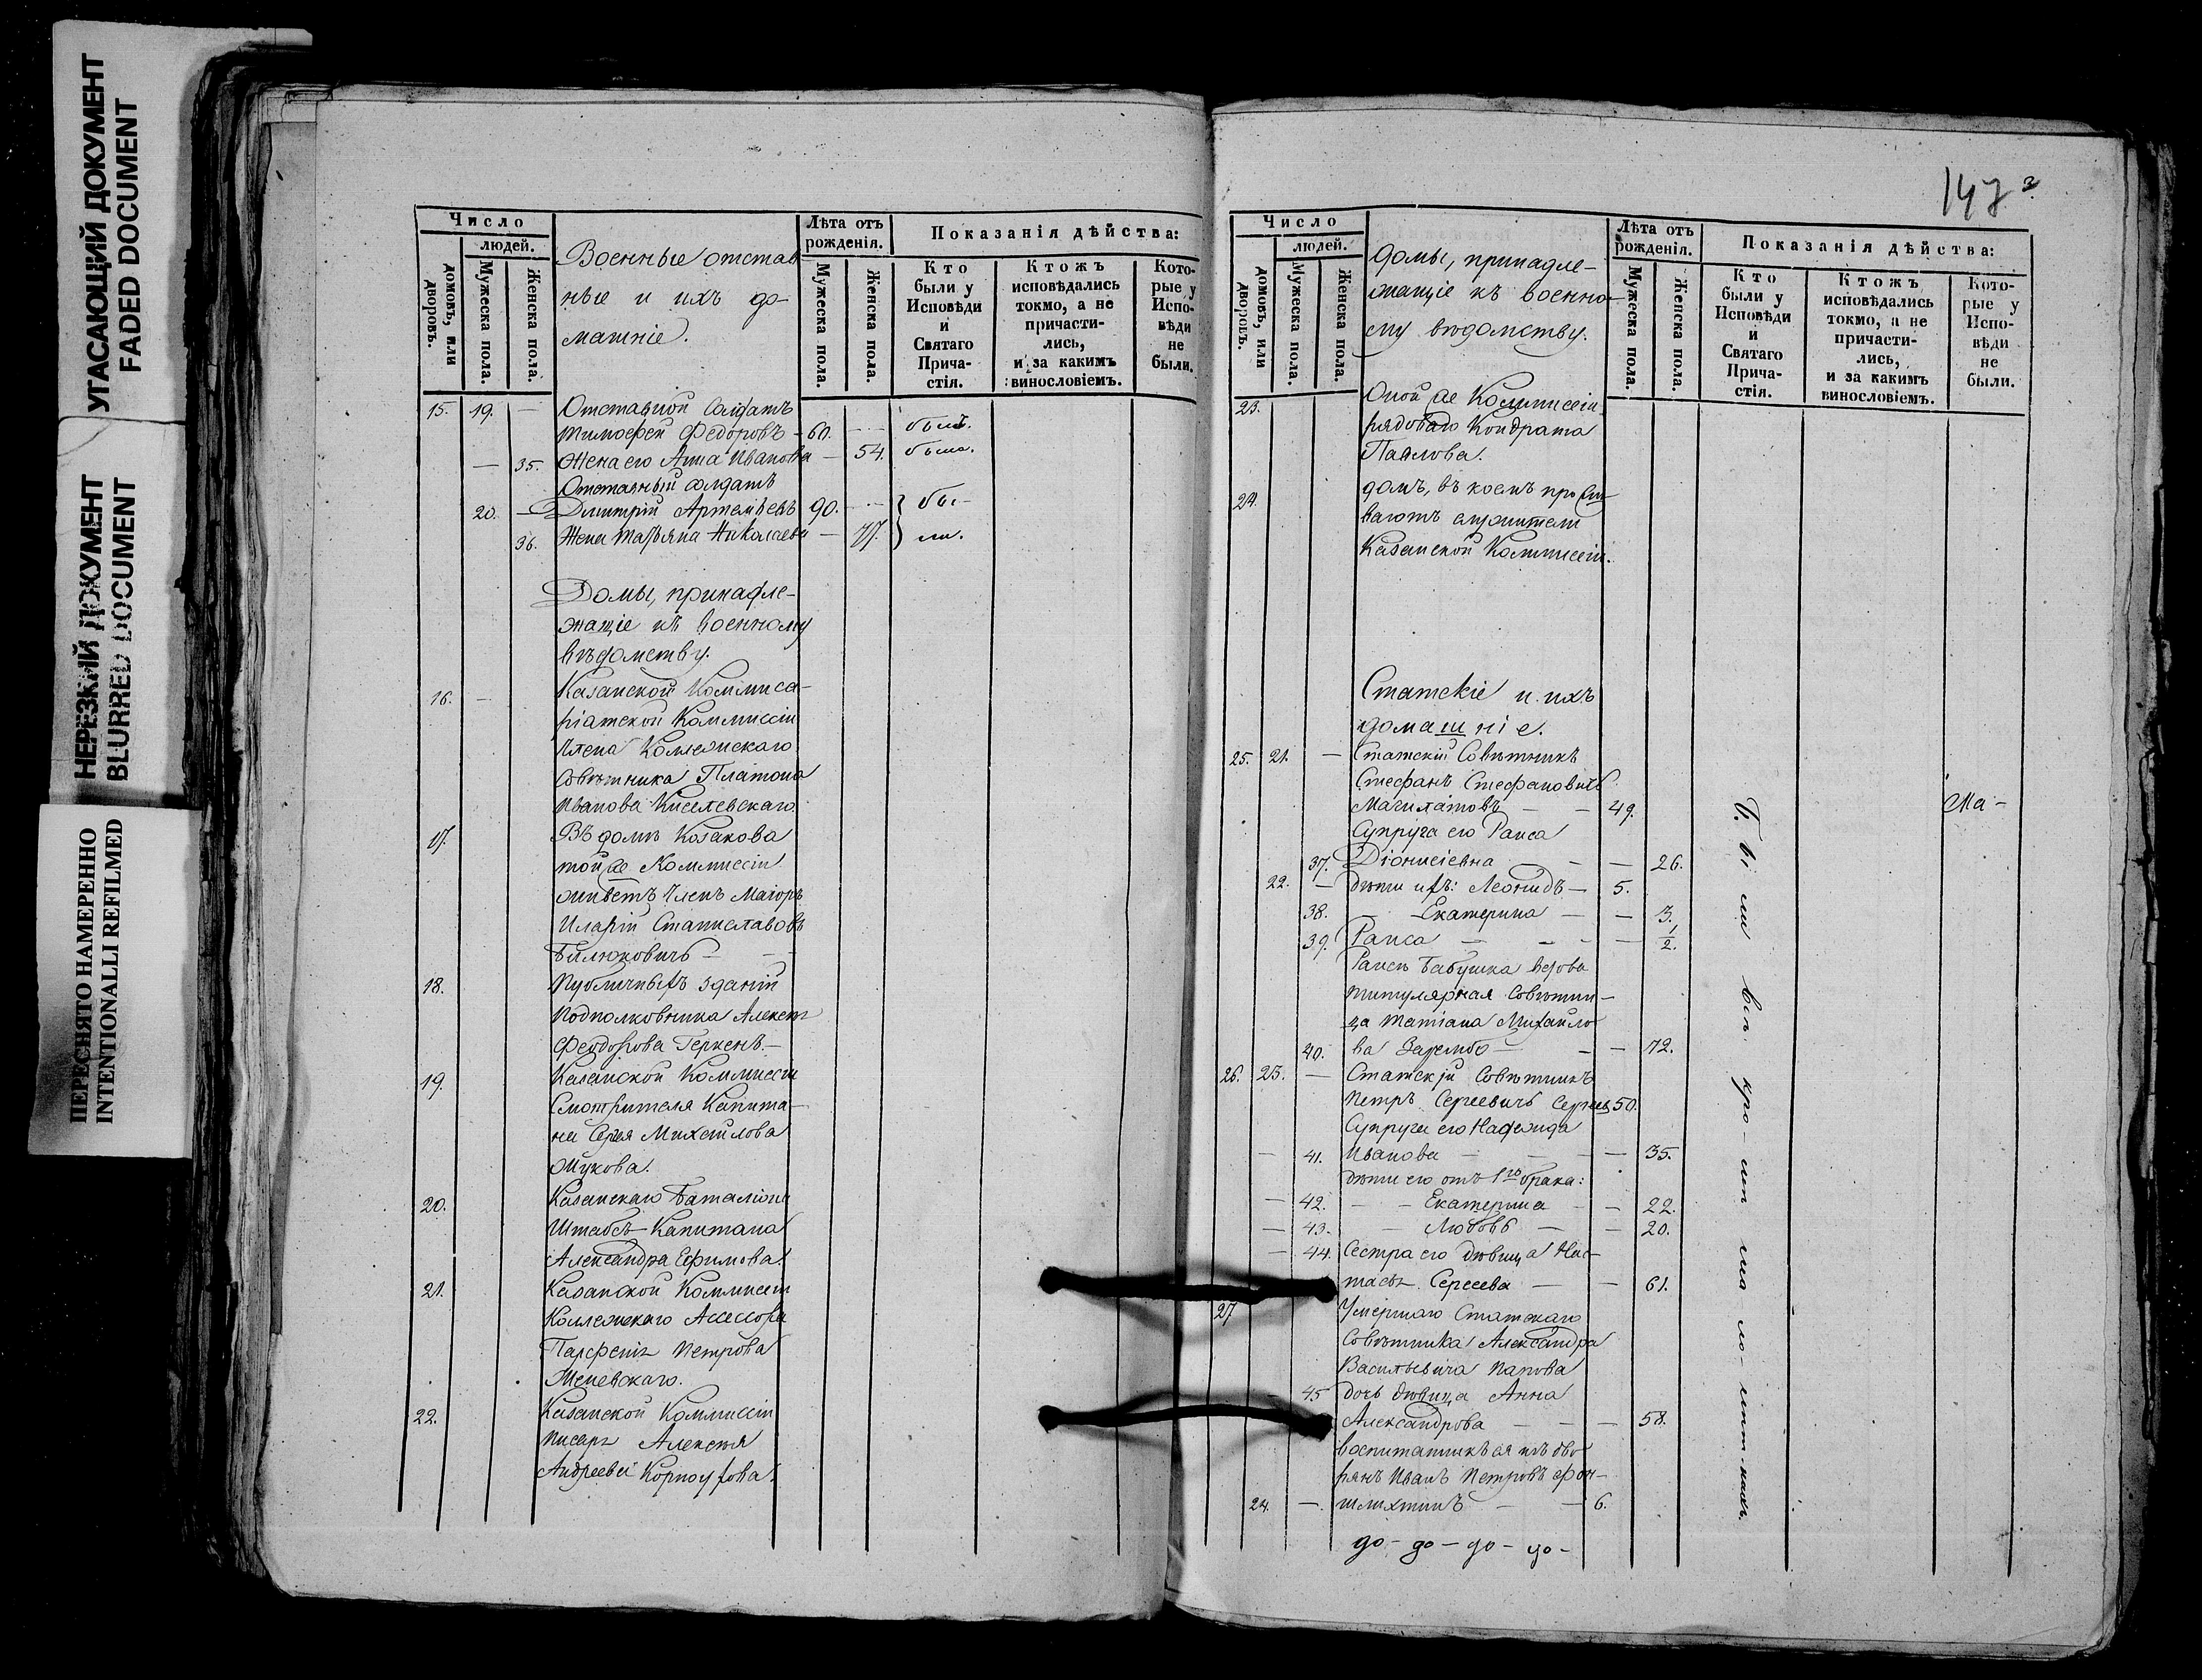 УГАСАЮЩИЙ ДОКУМЕНТ
FADED DOCUMENT
НЕРЕЗКИЙ ДОКУМЕНТ
BLURRED DOCUMENT
ПЕРЕСНЯТО НАМЕРЕННО
INTENTIONALLI REFILMED
Число
людей.
домовъ, или дворовъ.
Мужеска пола.
Женска пола.
Военные отстав
ные и ихъ до-
машніе.
Лѣта отъ рожденія.
Мужеска пола.
Женска пола.
Показанія дѣйства:
Кто были у Исповѣди и Святаго Прича-стія.
Ктожъ исповѣдались токмо, а не причасти-лись, и за какимъ винословіемъ.
Кото-рые у Испо-вѣди не были.
15. 19. — Отставной Солдатъ
Тимофей Федоровъ — 60. — былъ.
— 35. Жена его Анна Иванова — 54. была.
Отставный солдатъ
20. — Дмитрій Артемьевъ 90. — бы-
36. Жена Марьяна Николаева — 77. ли.
Домы, принадле-
жащіе къ военному
вѣдомству.
16. — Казанской Коммиса-
ріатской Коммиссіи
Члена Коллежскаго
Совѣтника Платона
Иванова Киселевскаго.
17. Въ домѣ Козакова
той же Коммиссіи
живетъ Членъ Маіоръ
Иларій Станиславовъ
Билюковичъ — —
18. Публичныхъ зданій
Подполковника Алексѣя
Феодорова Геркенъ —
19. Казанской Коммиссіи
Смотрителя Капита-
на Сергея Михайлова
Жукова.
20. Казанскаго Баталіона
Штабсъ-Капитана
Александра Ефимова.
21. Казанской Коммиссіи
Коллежскаго Ассесора
Парфенія Петрова
22. Казанской Коммиссіи
писаря Алексѣя
Андреева Корноухова.
147
Число
людей.
домовъ, или дворовъ.
Мужеска пола.
Женска пола.
домы, принадле-
жащіе къ военно-
му вѣдомству.
Лѣта отъ рожденія.
Мужеска пола.
Женска пола.
Показанія дѣйства:
Кто были у Исповѣди и Святаго Прича-стія.
Ктожъ исповѣдались токмо, а не причасти-лись, и за какимъ винословіемъ.
Кото-рые у Испо-вѣди не были.
23. Оной же Коммиссіи
рядоваго Кондрата
Павлова.
24. домъ, въ коемъ прожи-
ваютъ служители
Казанской Коммиссіи.
Статскіе и ихъ
домашніе.
25. 21. — Статскій Совѣтникъ
Стефанъ Стефановичъ
— — 49.
Супруга его Раиса
37. Діонисіевна — — 26.
22. — дѣти ихъ: Леонидъ — 5.
38. — Екатерина — — 3.
39. Раиса — — — 1/2.
Раисы бабушка вдова
титулярная совѣтни-
ца Татіана Михайло-
40. ва Зарембо — — — 72.
26. 23. — Статскій совѣтникъ
Петръ Сергеевичъ Сергеевъ 50.
Супруга его Надежда
— 41. Иванова — — — 35.
дѣти его отъ 1го брака:
— 42. — — Екатерина — — 22.
— 43. — Любовь — — 20.
— 44. Сестра его дѣвица Нас-
тасья Сергеева — — 61.
27. Умершаго Статскаго
Совѣтника Александра
Васильевича Панова
— 45 дочь дѣвица Анна
Александрова — — — 58.
воспитанникъ ея изъ дво-
рянъ Иванъ Петровъ фон-
24. — — — 6.
до — до — до — до —